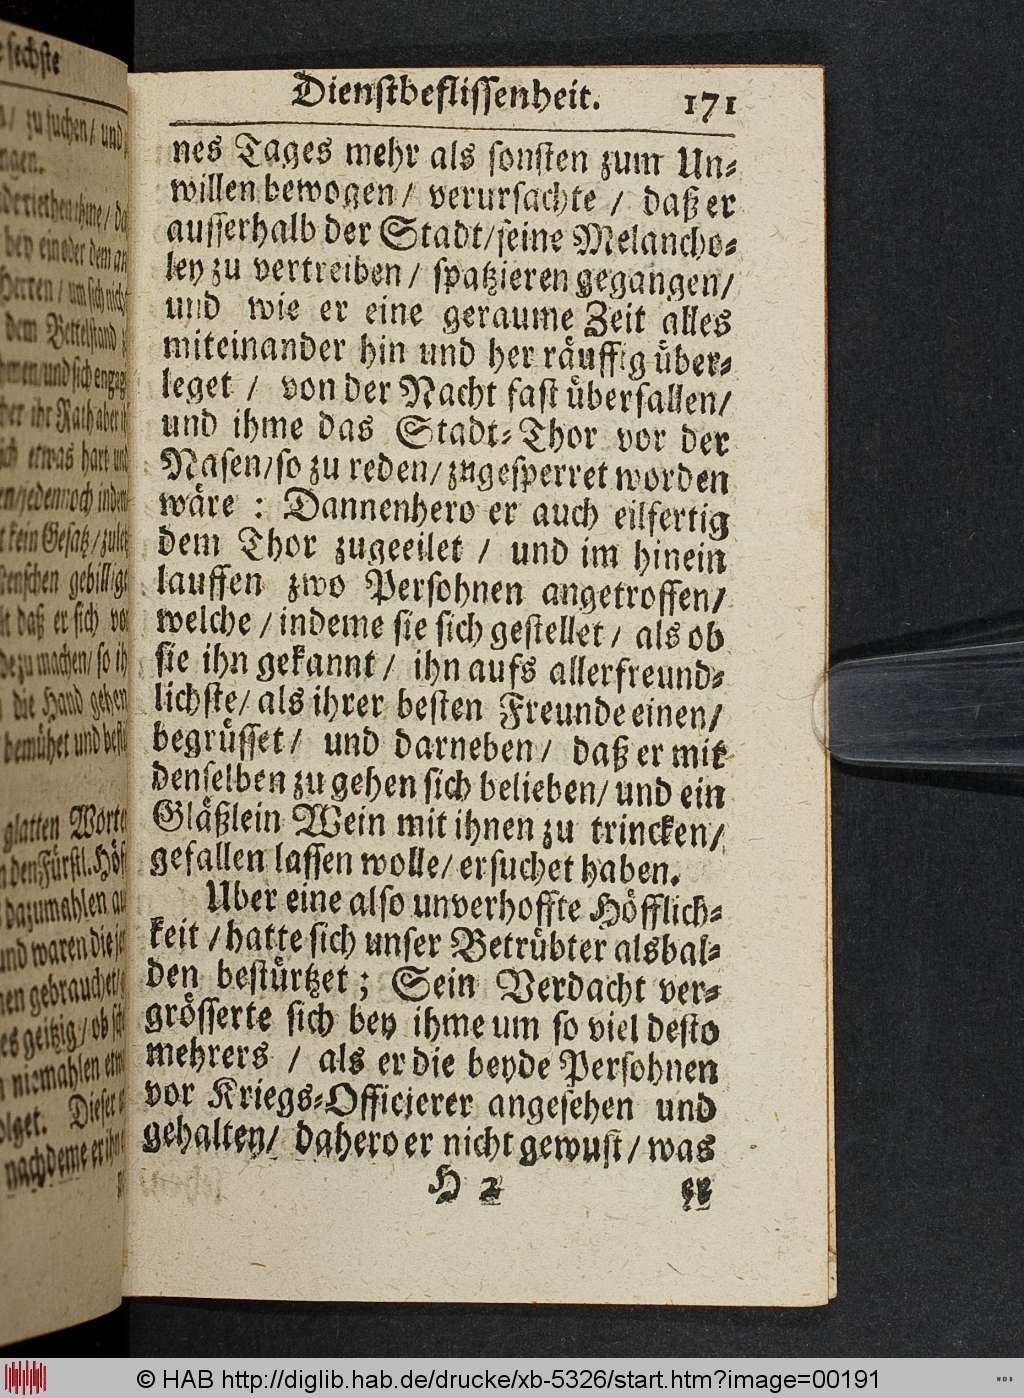 Dienstbeflissenheit. 171
nes Tages mehr als sonsten zum Un-
willen bewogen / verursachte / daß er
ausserhalb der Stadt / seine Melancho-
ley zu vertreiben / spatzieren gegangen /
und wie er eine geraume Zeit alles
miteinander hin und her räuffig über-
leget / von der Nacht fast überfallen /
und ihme das Stadt-Thor vor der
Nasen / so zu reden / zugesperret worden
wäre : Dannenhero er auch eilfertig
dem Thor zugeeilet / und im hinein
lauffen zwo Persohnen angetroffen /
welche / indeme sie sich gestellet / als ob
sie ihn gekannt / ihn aufs allerfreund-
lichste / als ihrer besten Freunde einen /
begrüsset / und darneben / daß er mit
denselben zu gehen sich belieben / und ein
Gläßlein Wein mit ihnen zu trincken /
gefallen lassen wolle / ersuchet haben.
Uber eine also unverhoffte Höfflich-
keit / hatte sich unser Betrübter alsbal-
den bestürtzet ; Sein Verdacht ver-
grösserte sich bey ihme um so viel desto
mehrers / als er die beyde Persohnen
vor Kriegs-Officierer angesehen und
gehalten / dahero er nicht gewust / was
H 2 er
sechste
zu suchen / und
ihme / da
bey ein oder dem an
Herren / um sich nicht
dem Bettelstand
und sich engag
ihr Rath aber
etwas hart und
jedennoch indem
kein Gesatz / zuletz
gebilligt
daß er sich vor
zu machen / so ih
die Hand gehen
bemühet und
glatten Worte
den Fürstl. Höf
dazumahlen au
und waren die je
gebrauchet /
geitzig / ob sch
niemahlen etw
Dieser
nachdeme er ihn
© HAB http://diglib.hab.de/drucke/xb-5326/start.htm?image=00191